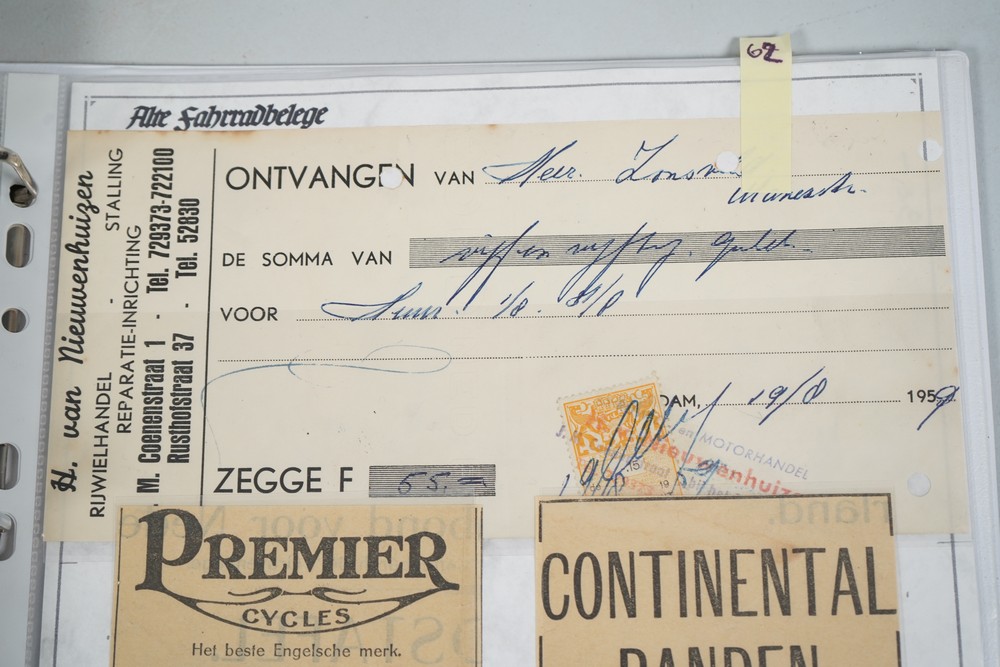 62
Alte Fahrradbelege
H. van Nieuwenhuizen
RIJWIELHANDEL STALLING
REPARATIE-INRICHTING
M. Coenenstraat 1 - Tel. 729373-722100
Rusthofstraat 37 - Tel. 52830
ONTVANGEN VAN Heer.
DE SOMMA VAN vijf en vijftig. Gulden
VOOR Huur. 1/8. 31/8
DAM, 19/8 1959
MOTORHANDEL
Nieuwenhuiz
ZEGGE F 55.=
PREMIER
CYCLES
Het beste Engelsche merk.
CONTINENTAL
BANDEN